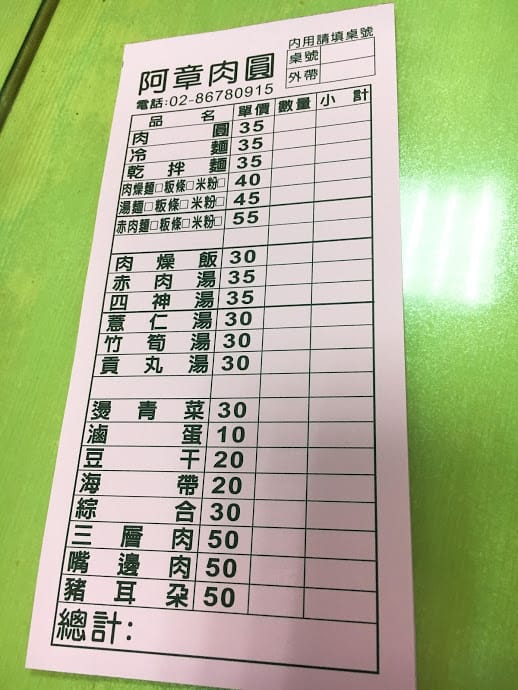 內用請填桌號
阿章肉圓
桌號
外帶
電話:02-86780915
品名 單價 數量 小計
肉圓 35
冷麵 35
乾拌麵 35
肉燥麵□粄條□米粉□ 40
湯麵□粄條□米粉□ 45
赤肉麵□粄條□米粉□ 55
肉燥飯 30
赤肉湯 35
四神湯 35
薏仁湯 30
竹筍湯 30
貢丸湯 30
燙青菜 30
滷蛋 10
豆干 20
海帶 20
綜合 30
三層肉 50
嘴邊肉 50
豬耳朶 50
總計: